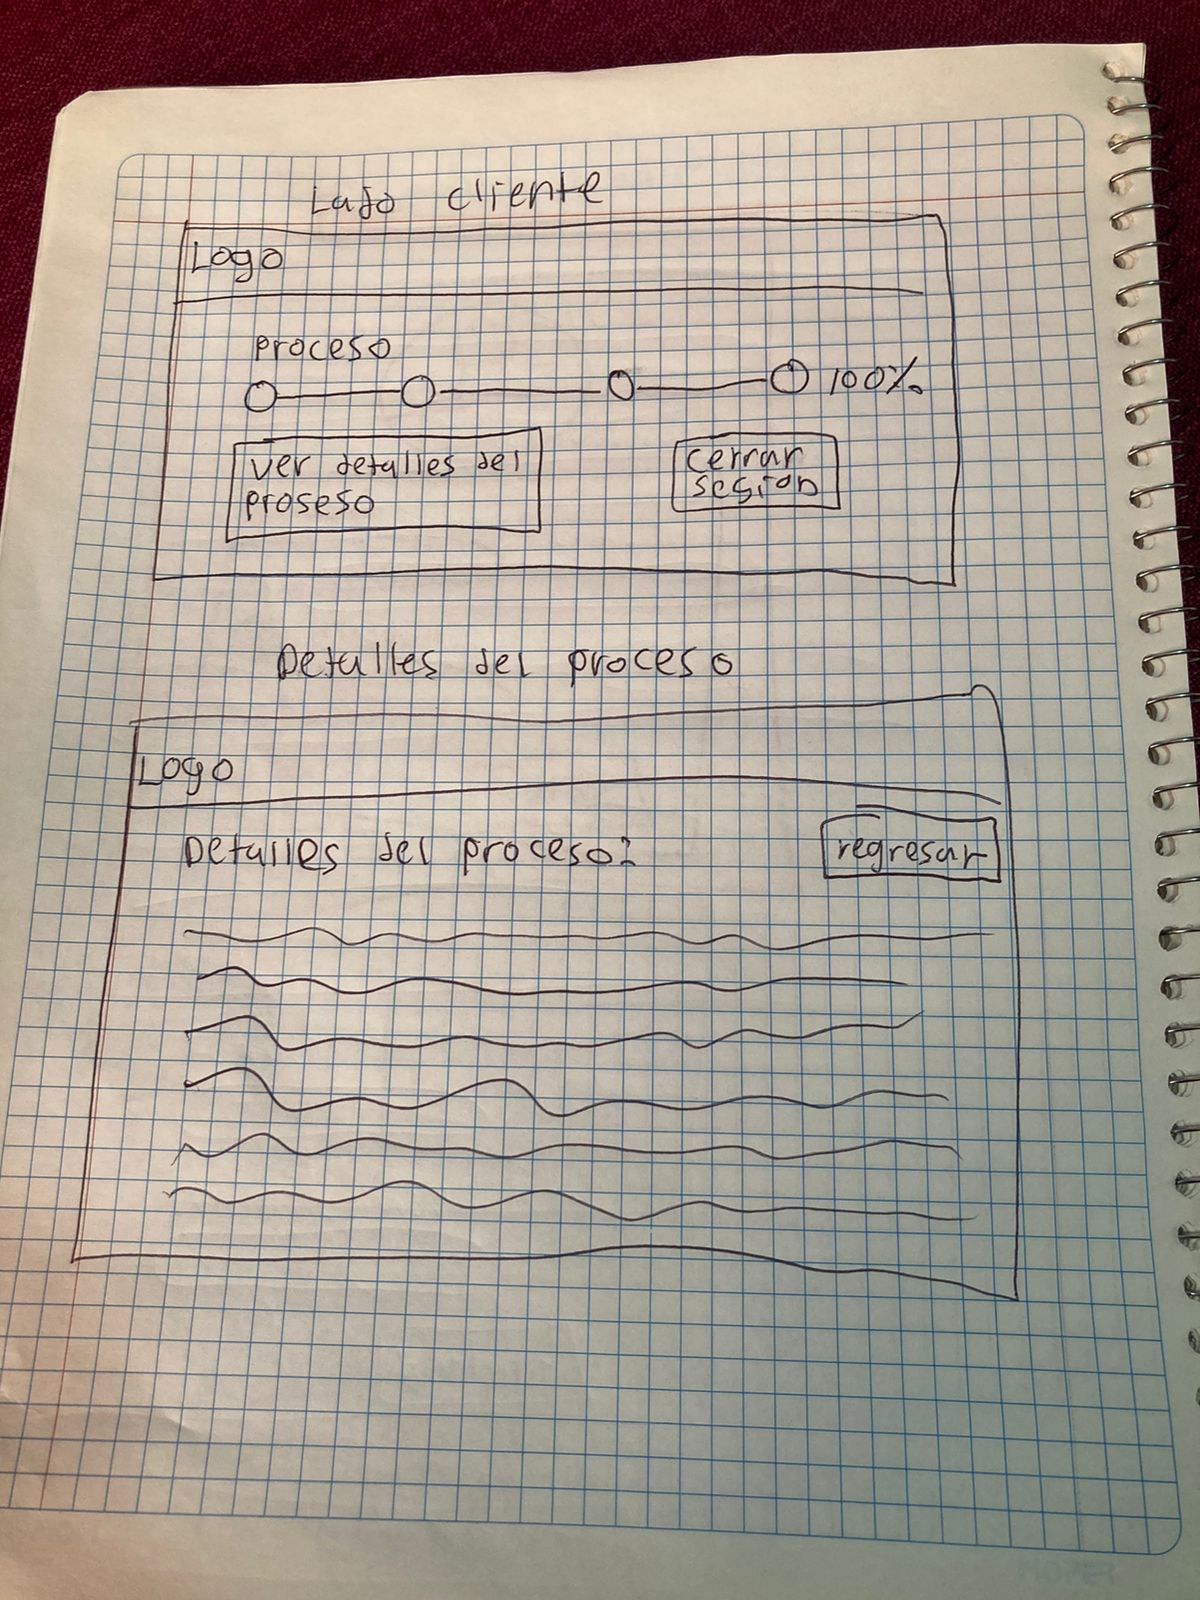 Lado cliente
Logo
proceso
100%
ver detalles del
proseso
cerrar
sesion
Detalles del proceso
Logo
Detalles del proceso:
regresar